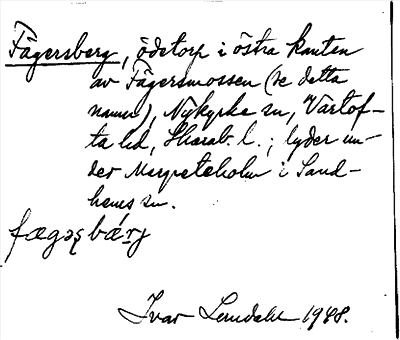 Fägersberg, ödetorp i östra kanten
av Fägersmossen (se detta
namn), Nykyrke sn, Vartof-
ta hd, Skarab. l.; lyder un-
der Margreteholm i Sand-
hems sn.
fægəʂbǽrj
Ivar Lundahl 1948.